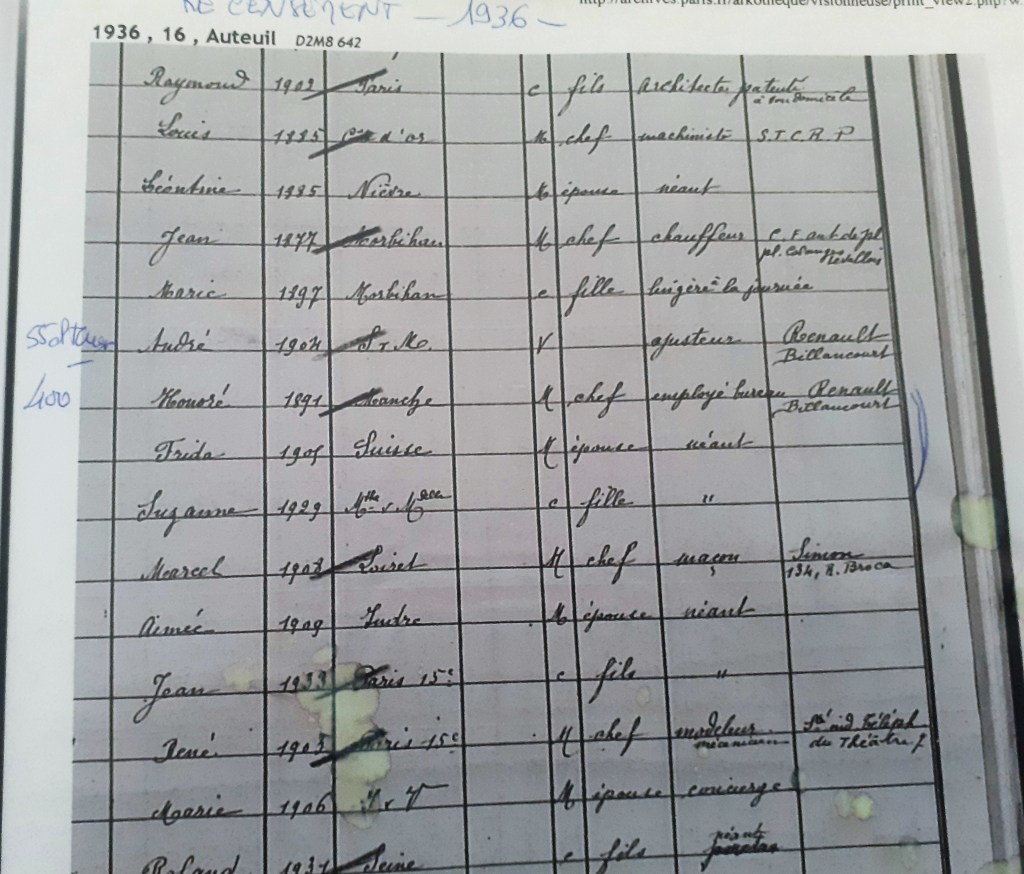 RECENSEMENT - 1936 -
http://archives.paris.fr/arkotheque/visionneuse/print_view2.php?w.
1936 , 16 , Auteuil D2M8 642
Raymond 1902 Paris c fils architecte patenté
à son domicile
Louis 1885 Côte d'or M chef machiniste S.T.C.R.P
Léontine 1885 Nièvre M épouse néant
Jean 1877 Morbihan M chef chauffeur
Levallois
Marie 1897 Morbihan c fille lingère à la journée
André 1904 S & M. V ajusteur Renault
Billancourt
400 Honoré 1891 Manche M chef employé bureau Renault
Billancourt
Frida 1905 Suisse M épouse néant
Suzanne 1929 c fille "
Marcel 1908 Loiret M chef maçon Simon
134, R. Broca
Aimée 1909 Indre M épouse néant
Jean 1933 Paris 15e c fils "
René 1905 Paris 15e M chef modeleur
mécanicien du Théâtre
Marie 1906 M épouse concierge
Roland 1931 Seine c fils néant